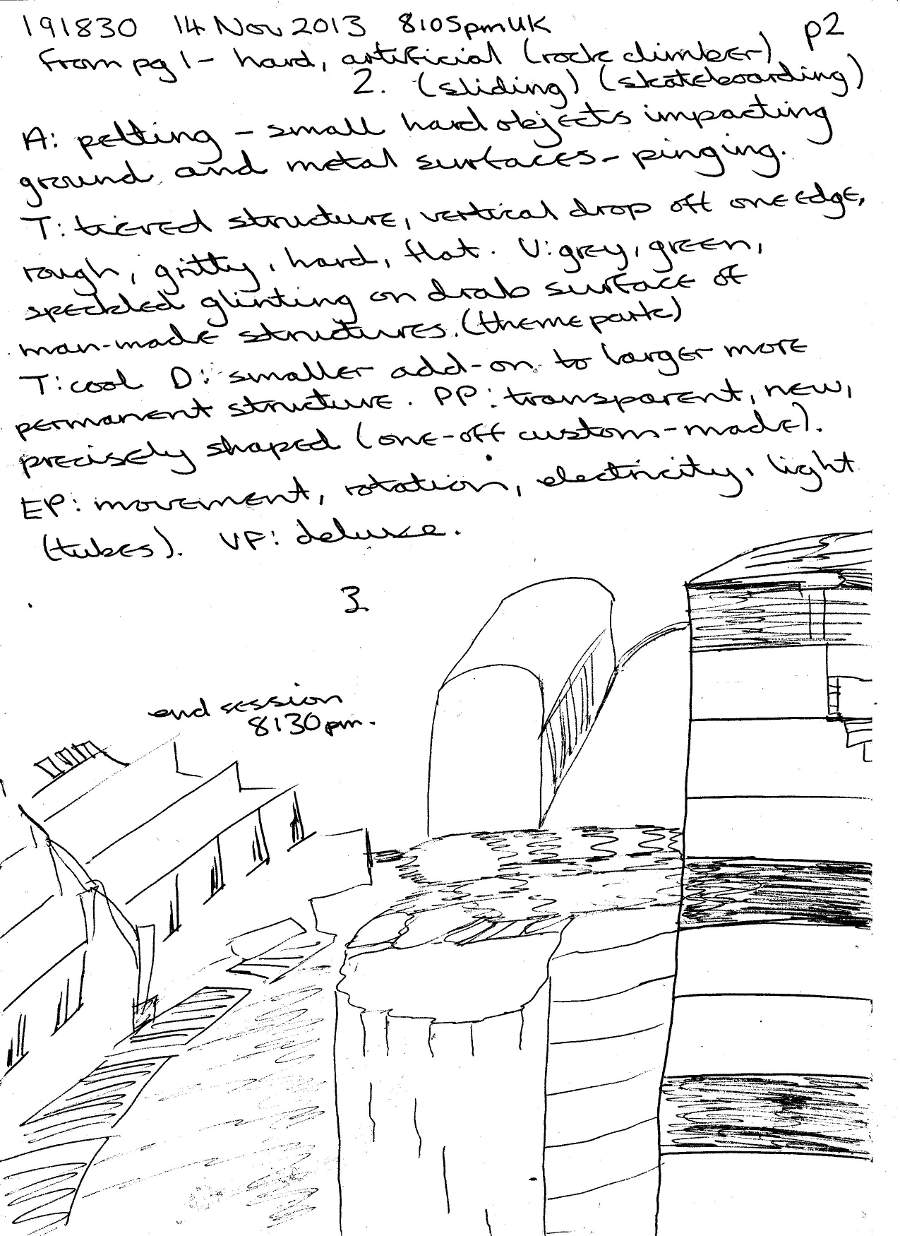 191830 14 Nov 2013 8:05pm UK p2
from pg 1 - hard, artificial (rock climber)
2. (sliding) (skateboarding)
A: pelting - small hard objects impacting
ground and metal surfaces - pinging.
T: tiered structure, vertical drop off one edge,
rough, gritty, hard, flat. V: grey, green,
speckled glinting on drab surface of
man-made structures. (theme park)
T: cool D: smaller add-on to larger more
permanent structure. PP: transparent, new,
precisely shaped (one-off custom-made).
EP: movement, rotation, electricity, light
(tubes). VP: deluxe.
3
end session
8:30pm.